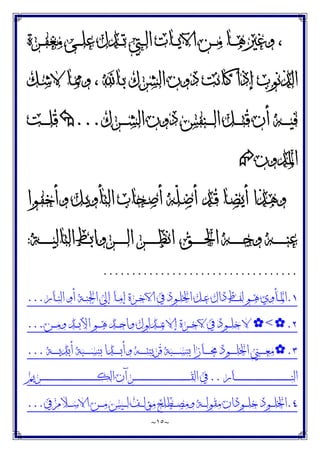 ، وغيرها من الايات التي تدل على مغفرة
الذنوب إذا كانت دون الشرك بالله ، ومما لاشك
فيه أن قتل النفس دون الشرك... قلت
المدون
وهذا أيضا قد أضله أصحاب التأويل وأخفوا
عنه وجه الحق، انظر الروابط التالية:
.................................
١. المأوى هو لفظ دال على الخلود في الاخرة إما إلى الجنة أو النار...
٢. ✿>✿ لا خلود في الاخرة إلا بمدلول واحد هو الأبد ومن...
٣.✿ معنى الخلود مجازا بنسبة قرينته وأبدا بنسبة أبدية ...
النار .. في القرآن الكريم
٤. الخلود خلودان مقولة ومصطلح مؤلف ليس من الاسلام في...
~١٥~